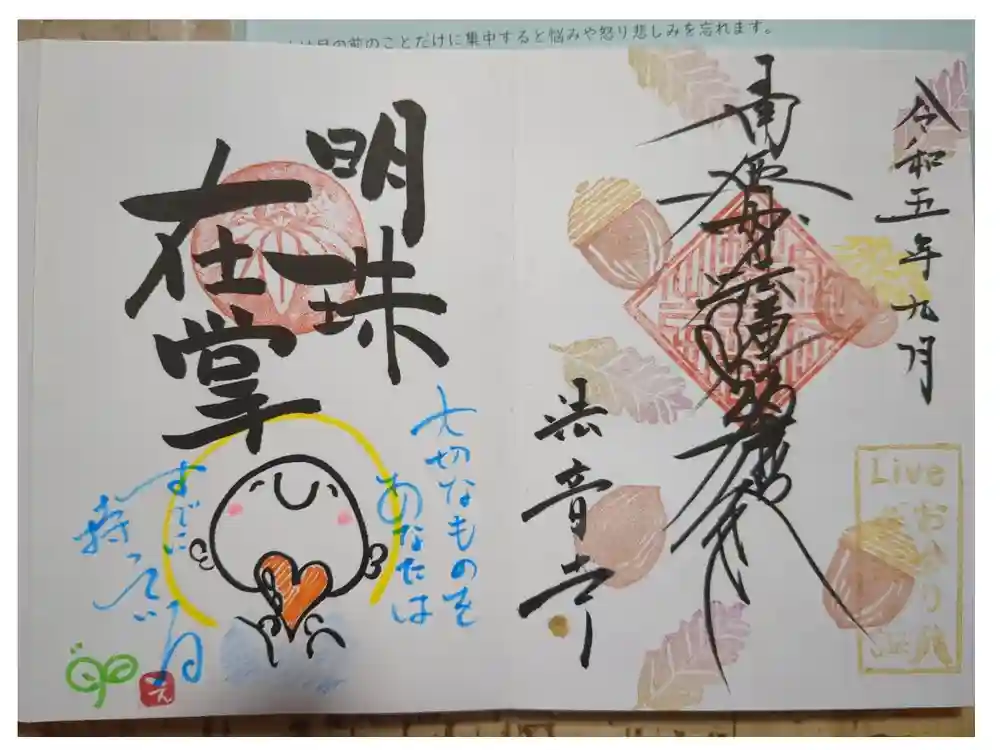 は目の前のことだけに集中すると悩みや怒り悲しみを忘れます。
令和五年九月
南無妙法蓮華経
法音寺
Live
明珠
在掌
大切なものを
あなたは
すでに
持っている
え